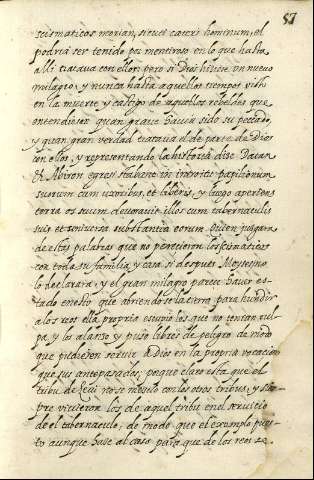 57
scismaticos morian, sicut cæteri hominum, el
podria ser tenido por mentiroso en lo que hasta
alli tratava con ellos; pero si Dios hiziere un nuevo
milagro, y nunca hasta aquellos tiempos visto
en la muerte y castigo de aquellos rebeldes que
entendiesen quan grave havia sido su peccado,
y quan gran verdad tratava el de parte de Dios
con ellos, y representando la historia dize Datan
et Abiron egressi stabant in introitu papilionum
suorum cum uxoribus, et liberis, y luego aperiens
terra os suum devoravit illos cum tabernaculis
suis et universa substantia eorum Quien juzgara
de estas palabras que no perecieron los scismaticos
con toda su familia, y casa si despues Moysen no
lo declarara, y el gran milagro parece haver es-
tado en esto que abriendose la tierra para hundir
a los reos ella propria escupio los que no tenian cul-
pa, y los alanzo y puso libres de peligro de modo
que pudiesen servir a Dios en la propria vocacion
que sus antepasados, porque claro esta que el
tribu de Levi no se mesclo con los otros tribus, y siem-
pre vivieron los de aquel tribu en el servicio
de el tabernaculo, de modo que el exemplo pues-
to aunque haze al caso para que de los reos se